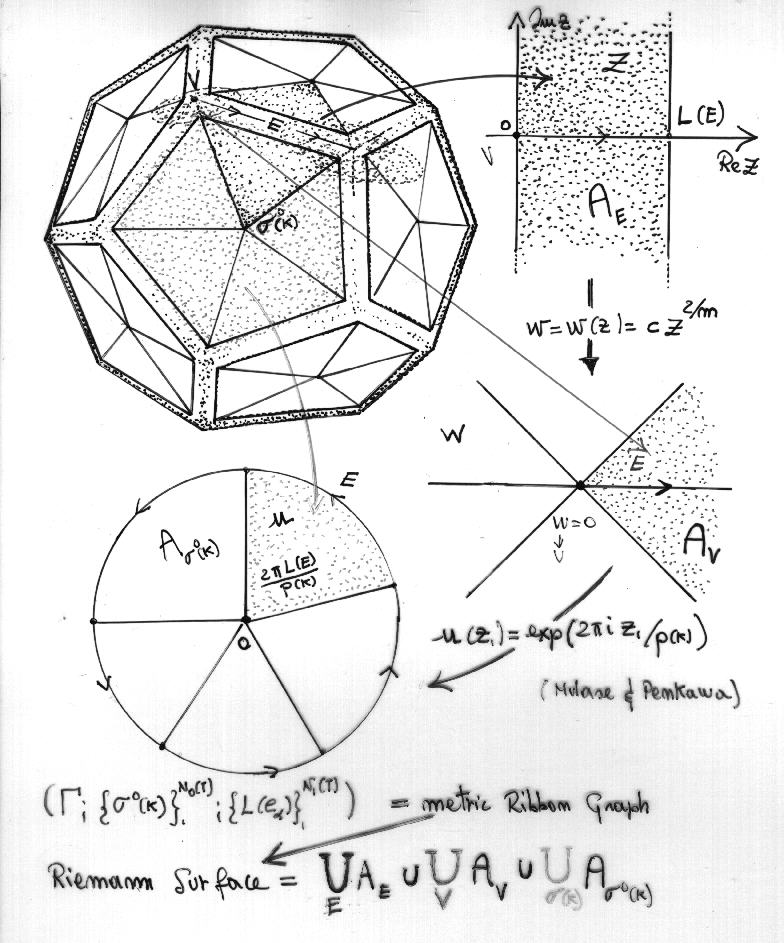 Im z
Z
V
E
L(E)
O
V
Re Z
σ⁰(k)
A_E
W = W(z) = c Z^{2/m}
W
E
μ
E
A_{σ⁰(k)}
2πL(E)/p(k)
W=0
↓
υ
A_V
O
u(z₁) = exp(2πi z₁/p(k))
(Mulase & Penkawa)
(Γ; {σ⁰(k)}₁^{N₀(T)}; {L(e_α)}₁^{N₁(T)}) = metric Ribbon Graph
Riemann Surface = ⋃_E A_E ∪ ⋃_V A_V ∪ ⋃_{σ(k)} A_{σ⁰(k)}